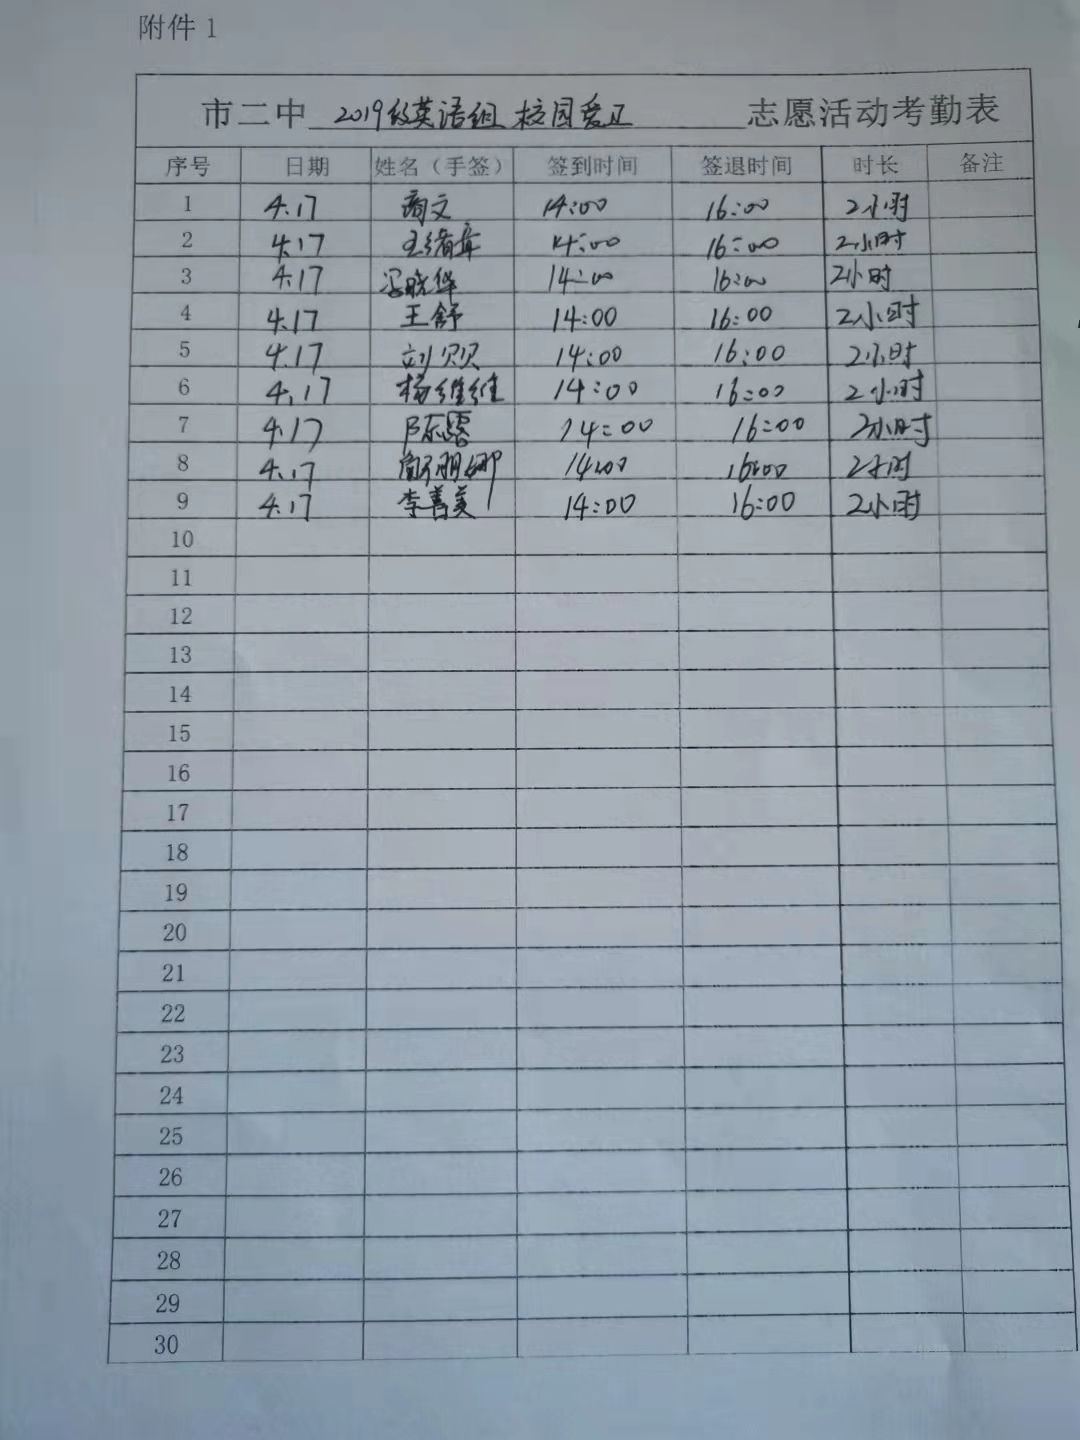 附件 1
市二中 2019级英语组 校园爱卫 志愿活动考勤表
序号 日期 姓名（手签） 签到时间 签退时间 时长 备注
1 4.17 文 14:00 16:00 2小时
2 4.17 王绪 14:00 16:00 2小时
3 4.17 冯晓华 14:00 16:00 2小时
4 4.17 王舒 14:00 16:00 2小时
5 4.17 刘贝贝 14:00 16:00 2小时
6 4.17 杨维维 14:00 16:00 2小时
7 4.17 陈露 14:00 16:00 2小时
8 4.17 丽娜 14:00 16:00 2小时
9 4.17 李善美 14:00 16:00 2小时
10
11
12
13
14
15
16
17
18
19
20
21
22
23
24
25
26
27
28
29
30